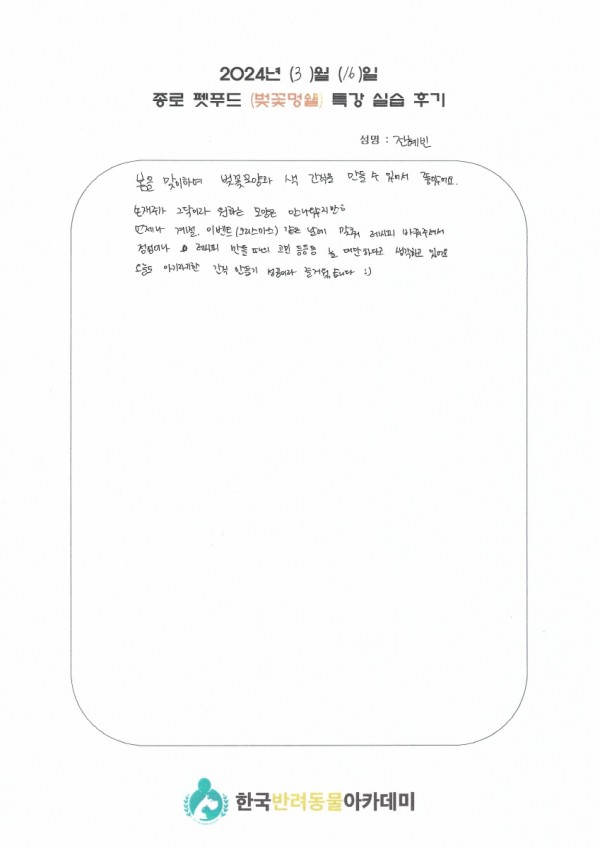 2024년 (3)월 (16)일
종로 펫푸드 (벚꽃멍쉘) 특강 실습 후기
성명 : 전혜빈
봄을 맞이하며 벚꽃모양과 색 간식을 만들 수 있어서 좋았어요.
손재주가 그닥이라 원하는 모양은 안나왔지만
언제나 계절, 이벤트(크리스마스) 같은 날에 맞춰 레시피 바꿔주셔서
정성이나 레시피 만들 때의 고민 등등등 늘 대단하다고 생각하고 있어요
오늘도 아기자기한 간식 만들기 성공이라 즐거웠습니다 :)
한국반려동물아카데미